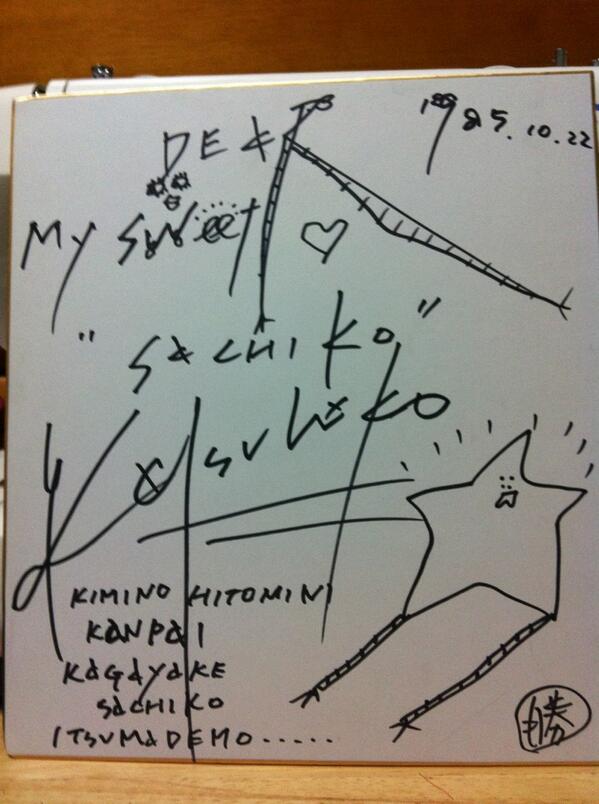 1985.10.22
DEAR
MY SWeet
"SACHIKO"
KatsuhiKO
KIMINO HITOMINI
KANPAI
KAGAYAKE
SACHIKO
ITSUMADEMO.....
勝